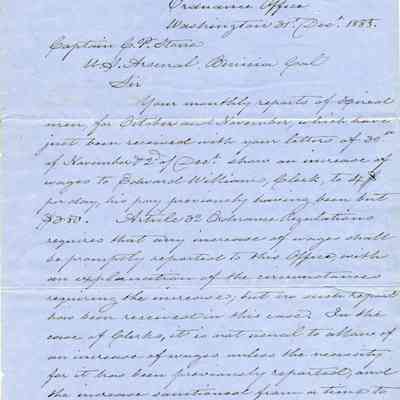 Ordnance Office
Washington 31st Decr. 1858.
Captain C. P. Stone
U. S. Arsenal Benicia Cal
Sir
Your monthly reports of hired
men, for October and November, which have
just been received with your letters of 30th
of November & 2d of Decr. show an increase of
wages to Edward Williams, Clerk, to 4$
per day, his pay previously having been but
$3.50. Article 32 Ordnance Regulations
requires that any increase of wages shall
be promptly reported to this Office, with
an explanation of the circumstances
requiring the increase, but no such report
has been received in this case. In the
case of Clerks, it is not usual to allow of
an increase of wages unless the necessity
for it has been previously reported, and
the increase sanctioned from a time to